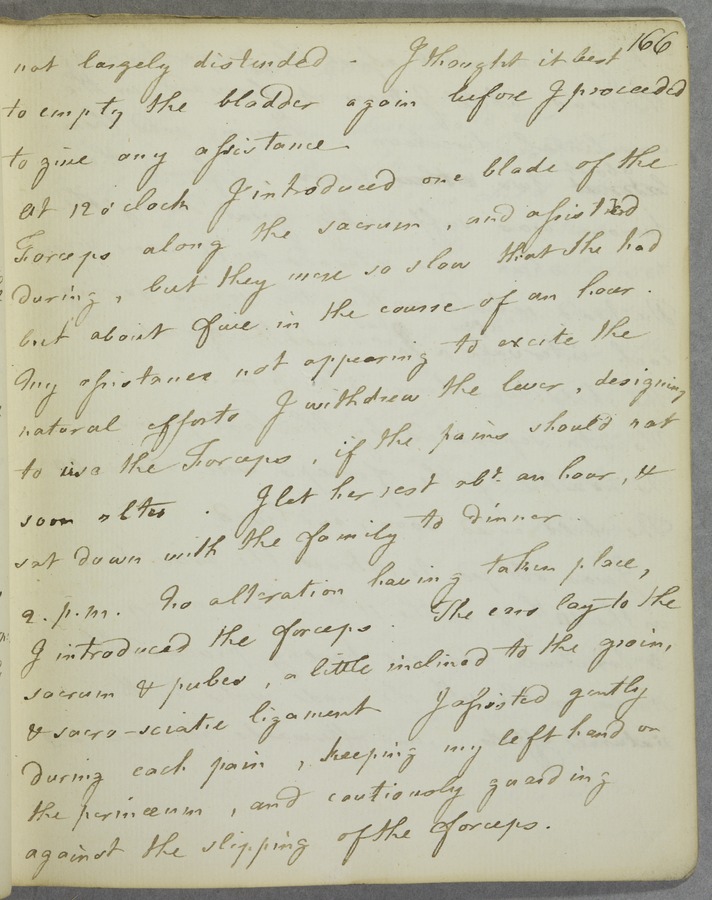 166
not largely distended - I thought it best
to empty the bladder again before I proceeded
to give any assistance
At 12 o'clock I introduced one blade of the
Forceps along the sacrum, and assisted
during, but they were so slow that she had
but about five in the course of an hour.
My assistance not appearing to excite the
natural efforts I withdrew the lever, designing
to use the Forceps, if the pains should not
soon alter. I let her rest abt. an hour, &
sat down with the family to dinner.
2. p.m. No alteration having taken place,
I introduced the forceps. The ears lay to the
sacrum & pubes, a little inclined to the groin,
& sacro-sciatic ligament I assisted gently
during each pain, keeping my left hand on
the perinæum, and cautiously guarding
against the slipping of the forceps.